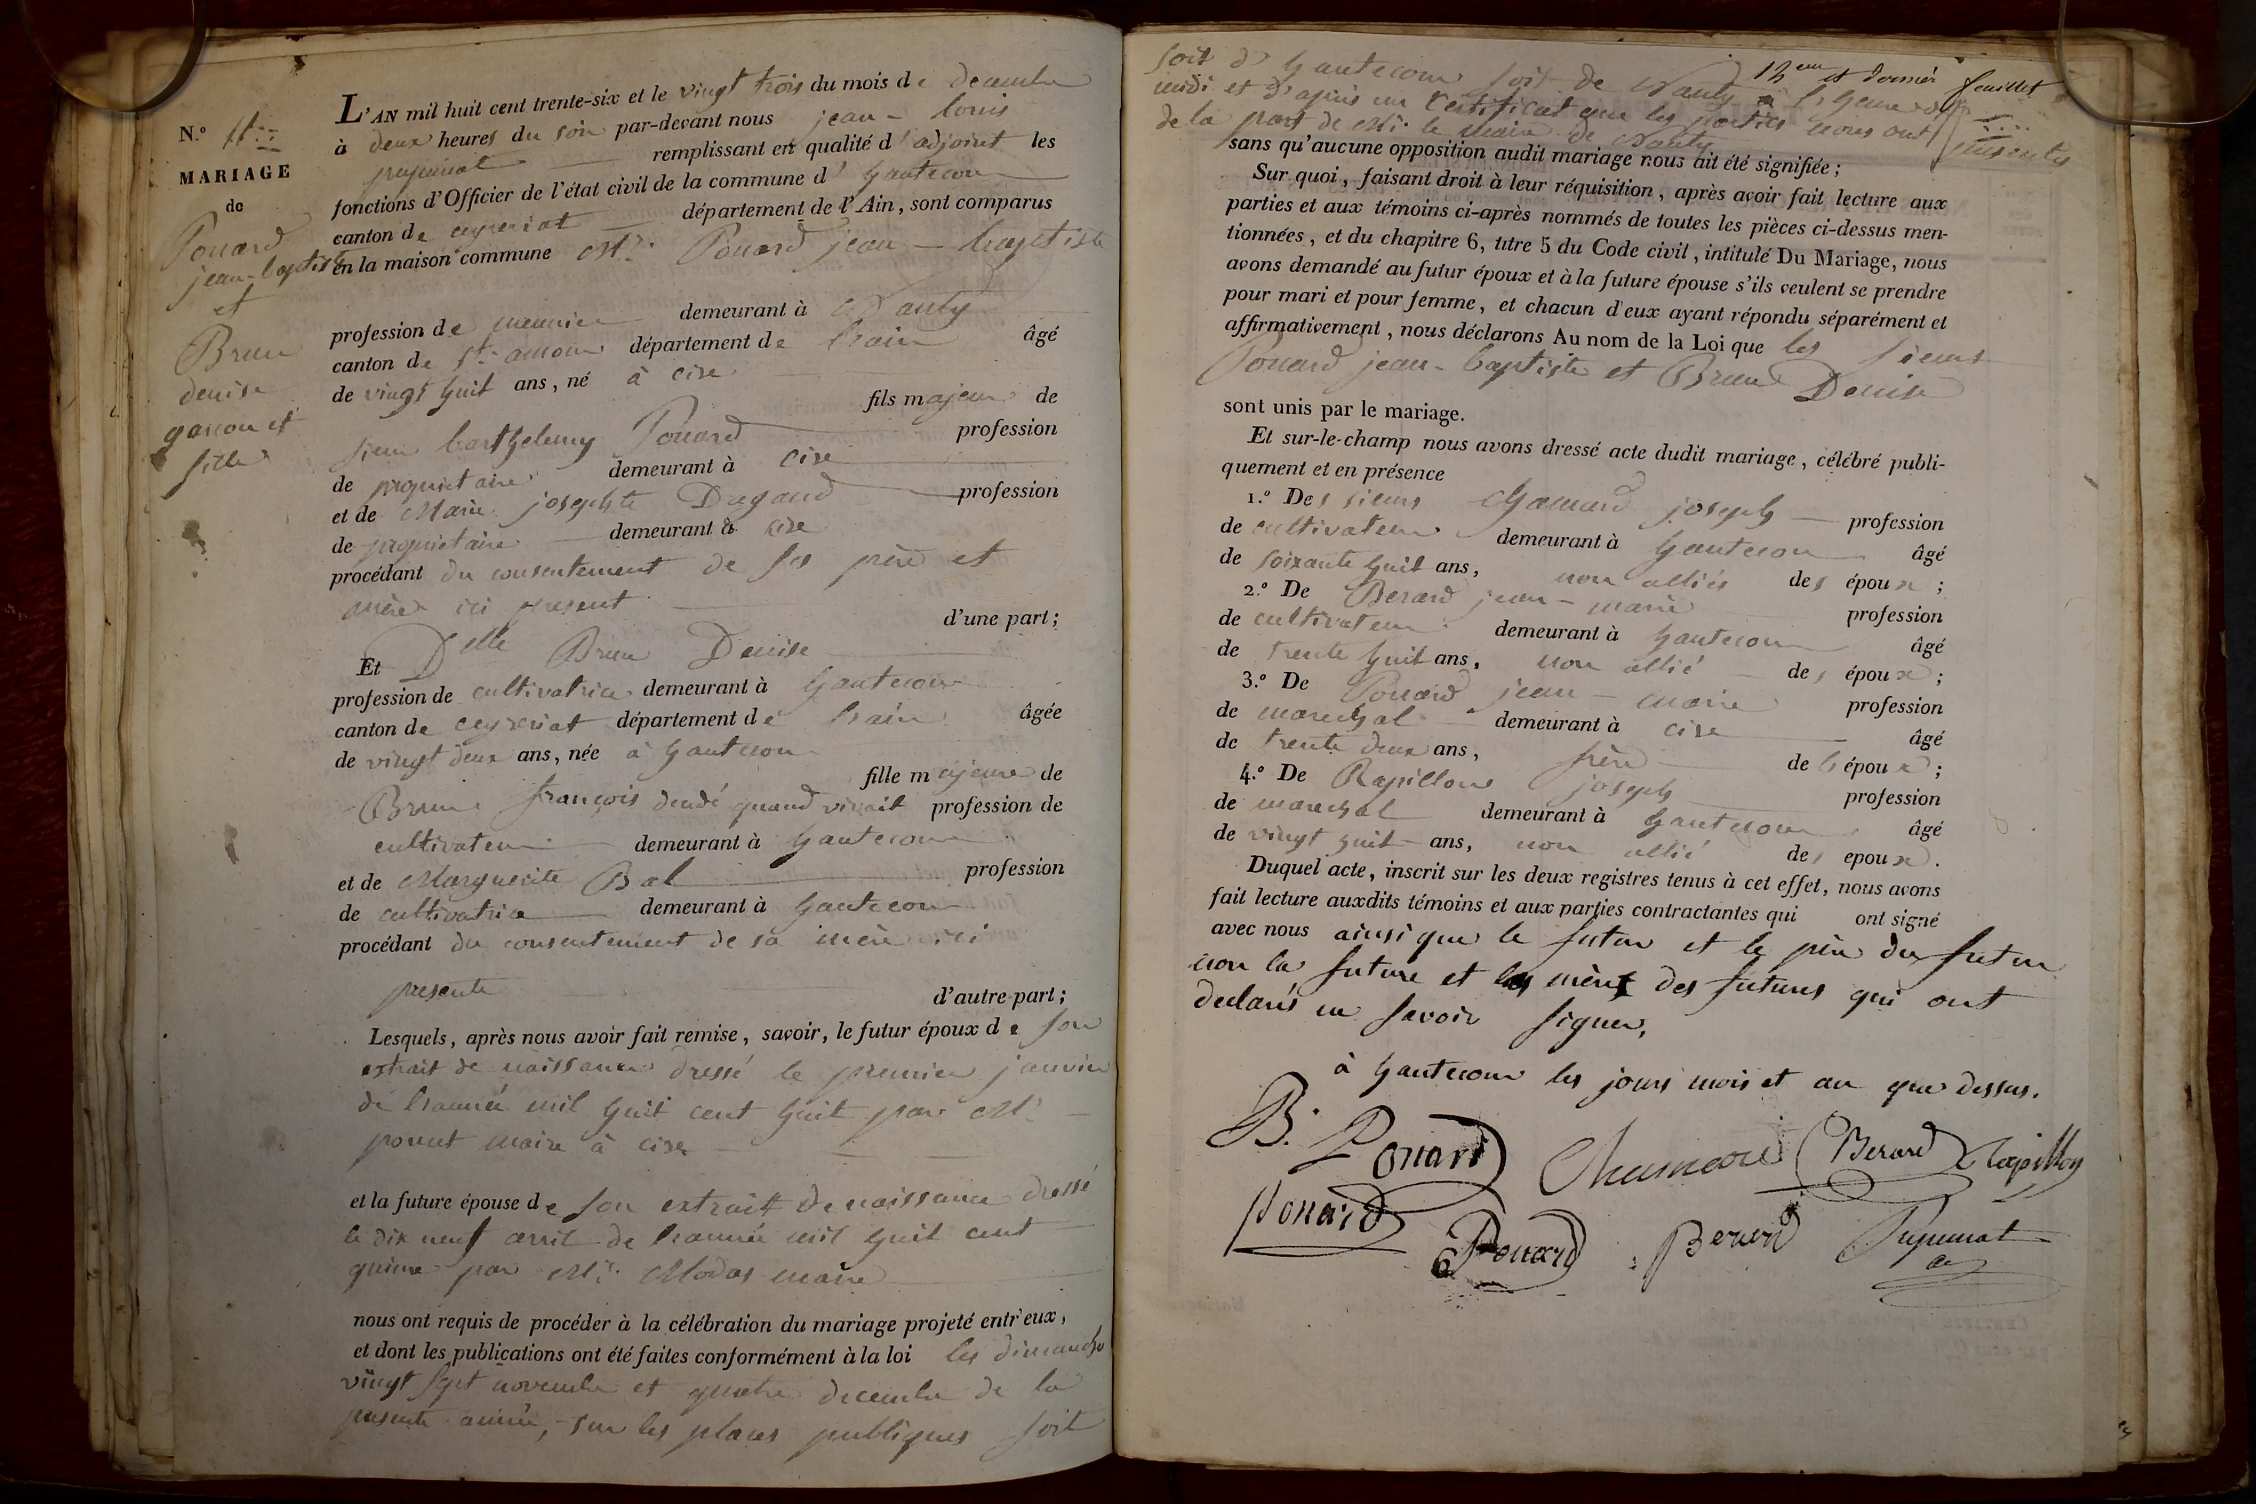 N.º 11
MARIAGE
de
Pouard
jean-baptiste
et
Brun
denise
garcon et
fille
L'AN mil huit cent trente-six et le vingt trois du mois de decembre
à deux heures du soir par-devant nous jean-louis
remplissant en qualité d'adjoint les
fonctions d'Officier de l'état civil de la commune d'hautecour
canton de ceyzeriat département de l'Ain, sont comparus
en la maison commune Mr. Pouard jean-baptiste
profession de meunier demeurant à Nanty
canton de st. amour département de l'ain âgé
de vingt huit ans, né à cize
fils majeur de
sieur barthelemy Pouard profession
de proprietaire demeurant à cize
et de Marie josephte Dregaud profession
de proprietaire demeurant à cize
procédant du consentement de ses père et
mère ici present d'une part;
Et Delle Brun Denise
profession de cultivatrice demeurant à hautecour
canton de ceyzeriat département de l'ain âgée
de vingt deux ans, née à hautecour
fille majeure de
Brun françois decedé quand vivait profession de
cultivateur demeurant à hautecour
et de Marguerite Bal profession
de cultivatrice demeurant à hautecour
procédant du consentement de sa mère ici
presente d'autre part;
Lesquels, après nous avoir fait remise, savoir, le futur époux de son
extrait de naissance dressé le premier janvier
de l'année mil huit cent huit par Mr.
maire à cize
et la future épouse de son extrait de naissance dressé
le dix neuf avril de l'année mil huit cent
quinze par Mr. Modas maire
nous ont requis de procéder à la célébration du mariage projeté entr'eux,
et dont les publications ont été faites conformément à la loi les dimanche
vingt sept novembre et quatre decembre de la
presente année, sur les places publiques soit
12eme et dernier feuillet
soit d'hautecour soit de Nanty à l'heure de
midi et d'après un certificat que les parties nous ont presentés
de la part de Mr. le maire de Nanty
sans qu'aucune opposition audit mariage nous ait été signifiée;
Sur quoi, faisant droit à leur réquisition, après avoir fait lecture aux
parties et aux témoins ci-après nommés de toutes les pièces ci-dessus men-
tionnées, et du chapitre 6, titre 5 du Code civil, intitulé Du Mariage, nous
avons demandé au futur époux et à la future épouse s'ils veulent se prendre
pour mari et pour femme, et chacun d'eux ayant répondu séparément et
affirmativement, nous déclarons Au nom de la Loi que les sieurs
Pouard jean-baptiste et Brun Denise
sont unis par le mariage.
Et sur-le-champ nous avons dressé acte dudit mariage, célébré publi-
quement et en présence
1.º Des sieurs Chamard joseph profession
de cultivateur demeurant à hautecour âgé
de soixante huit ans, non alliés des époux;
2.º De Berard jean-marie profession
de cultivateur demeurant à hautecour âgé
de trente huit ans, non allié des époux;
3.º De Pouard jean-marie profession
de marechal demeurant à cize âgé
de trente deux ans, frère de l'époux;
4.º De Rapillon joseph profession
de marechal demeurant à hautecour âgé
de vingt huit ans, non allié des epoux.
Duquel acte, inscrit sur les deux registres tenus à cet effet, nous avons
fait lecture auxdits témoins et aux parties contractantes qui ont signé
avec nous ainsi que le futur et le père du futur
non la future et les mères des futurs qui ont
declarés ne savoir signer,
à hautecour les jours mois et an que dessus.
B. Pouard Chamard Berard Rapillon
Pouard Pouard Berard